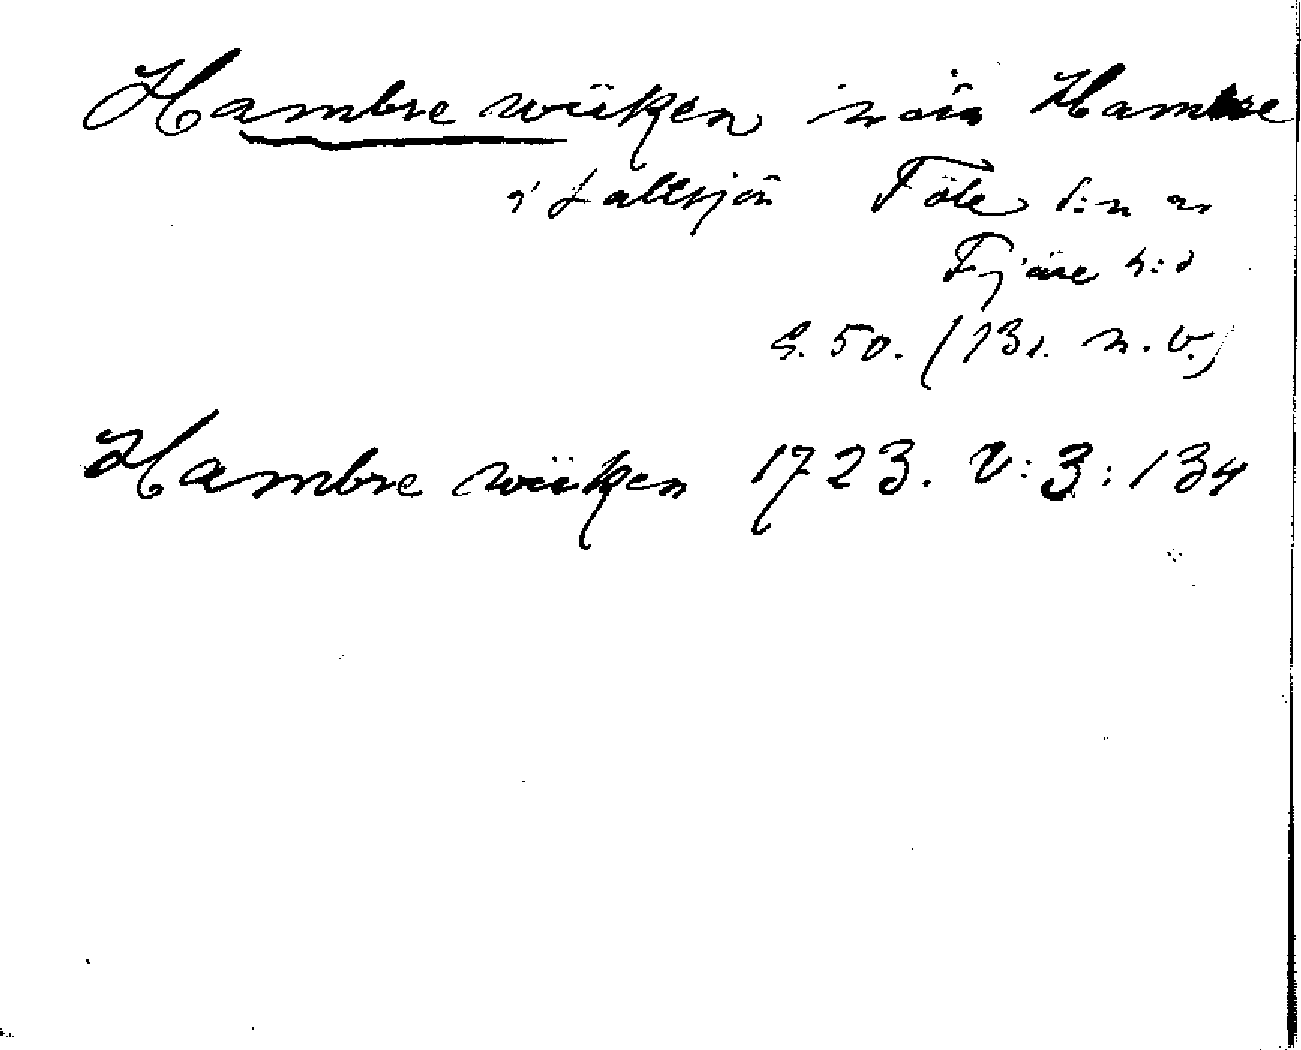 Hambre wiiken när Hambre
i Saltsjön Töle s:n
Fjäre h:d
S. 50. (131. n. v.)
Hambre wiiken 1723. V:3:134